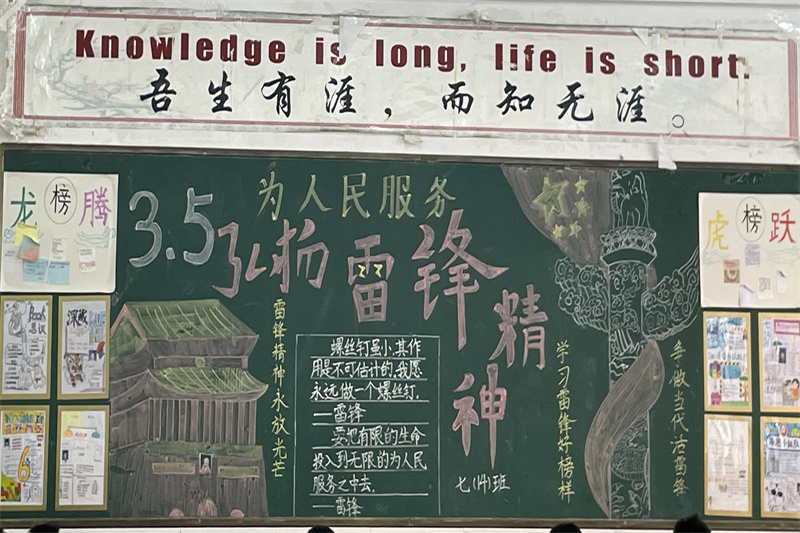 Knowledge is long, life is short.
吾生有涯，而知无涯。
龙榜腾
3.5
为人民服务
弘扬雷锋精神
虎榜跃
雷锋精神永放光芒
螺丝钉虽小,其作
用是不可估计的,我愿
永远做一个螺丝钉.
—雷锋
要把有限的生命
投入到无限的为人民
服务之中去.
—雷锋
七(14)班
学习雷锋好榜样
争做当代活雷锋